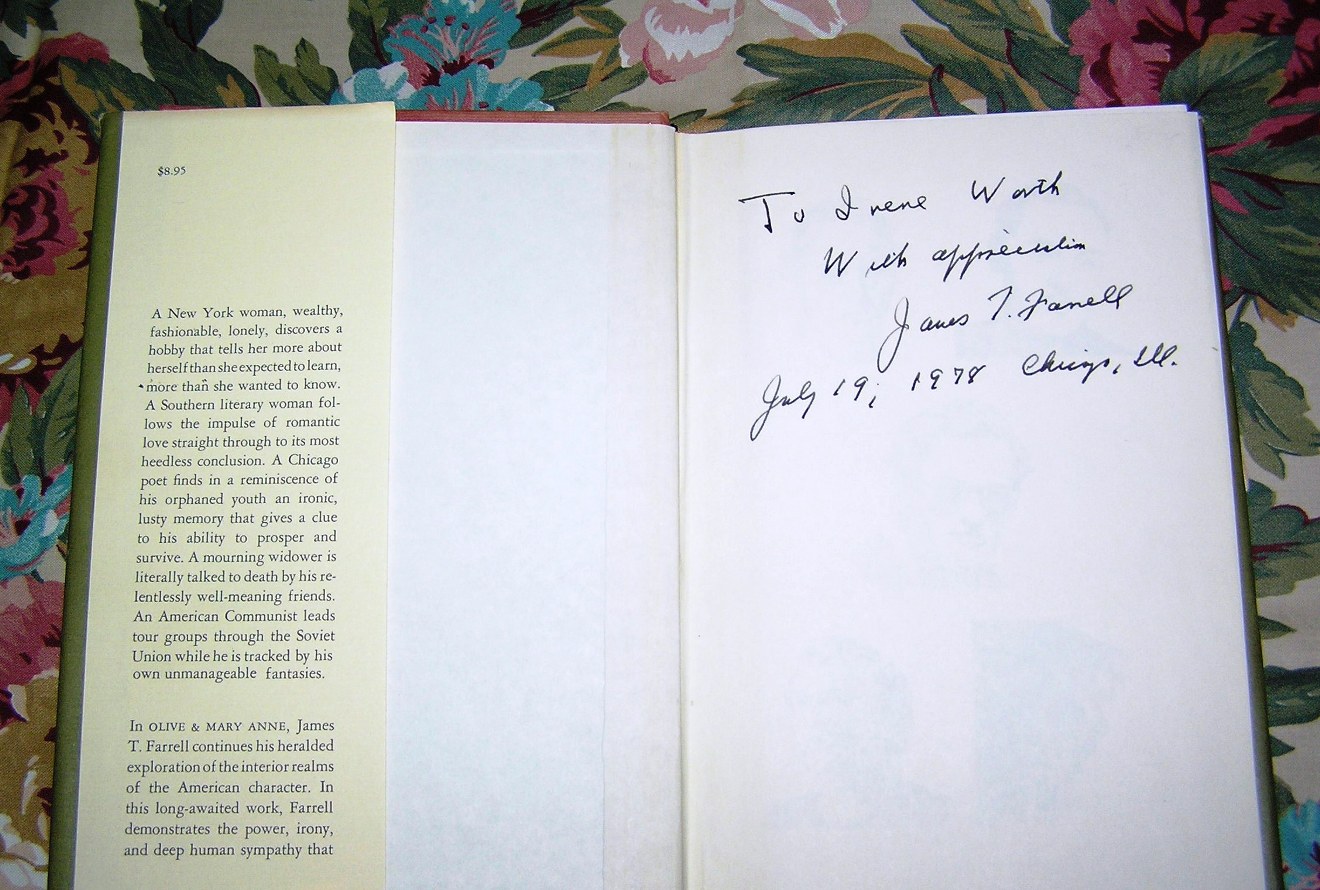 $8.95
A New York woman, wealthy,
fashionable, lonely, discovers a
hobby that tells her more about
herself than she expected to learn,
more than she wanted to know.
A Southern literary woman fol-
lows the impulse of romantic
love straight through to its most
heedless conclusion. A Chicago
poet finds in a reminiscence of
his orphaned youth an ironic,
lusty memory that gives a clue
to his ability to prosper and
survive. A mourning widower is
literally talked to death by his re-
lentlessly well-meaning friends.
An American Communist leads
tour groups through the Soviet
Union while he is tracked by his
own unmanageable fantasies.
In OLIVE & MARY ANNE, James
T. Farrell continues his heralded
exploration of the interior realms
of the American character. In
this long-awaited work, Farrell
demonstrates the power, irony,
and deep human sympathy that
To Irene Worth
With appreciation
James T. Farrell
July 19, 1978 Chicago, Ill.